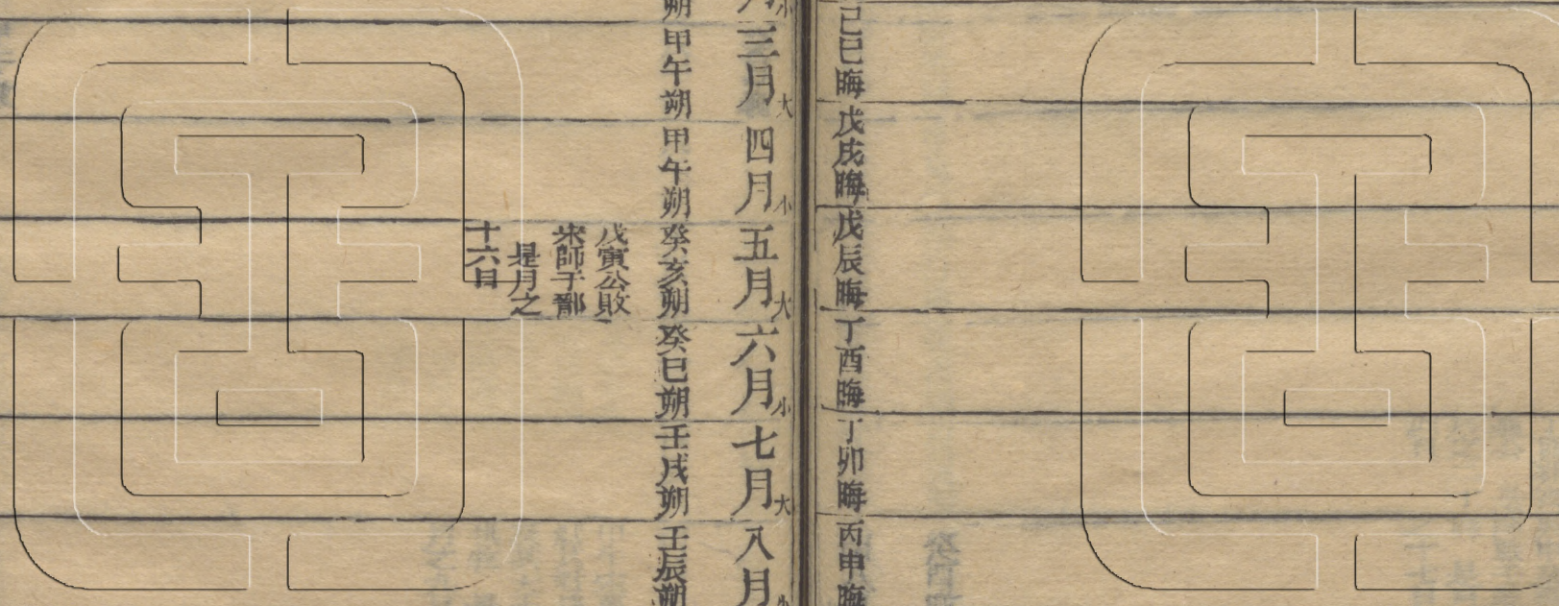 己巳晦戊戌晦戊辰晦丁酉晦丁卯晦丙申晦
月小三月大四月小五月大六月小七月大八月小
朔甲午朔甲午朔癸亥朔癸巳朔壬戌朔壬辰朔
戊寅公敗
宋師于鄑
是月之
十六日